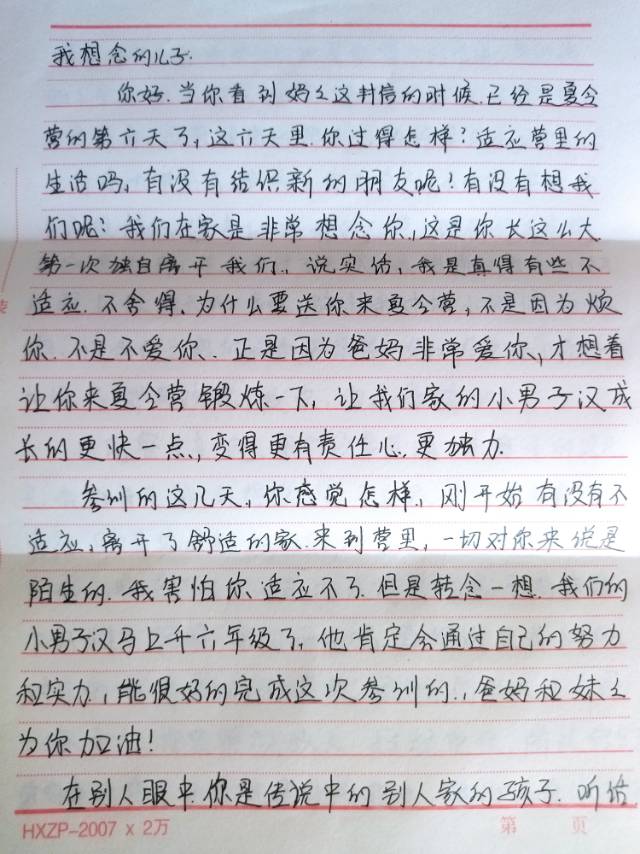 我想念的儿子.
你好.当你看到妈々这封信的时候.已经是夏令
营的第六天了,这六天里.你过得怎样?适应营里的
生活吗,有没有结识新的朋友呢!有没有想我
们呢?我们在家是非常想念你.,这是你长这么大
第一次独自离开我们.,说实话,我是真得有些不
适应.不舍得.为什么要送你来夏令营,不是因为烦
你.不是不爱你..正是因为爸妈非常爱你,,才想着
让你来夏令营锻炼一下,让我们家的小男子汉成
长的更快一点,,变得更有责任心.更独力.
参训的这几天,你感觉怎样,刚开始有没有不
适应,离开了舒适的家.来到营里,一切对你来说是
陌生的.我害怕你适应不了.但是转念一想.我们的
小男子汉马上升六年级了,他肯定会通过自己的努力
和实力,能很好的完成这次参训的.,爸妈和妹々
为你加油!
在别人眼中.你是传说中的别人家的孩子.听话
HXZP-2007 x 2万 第 页